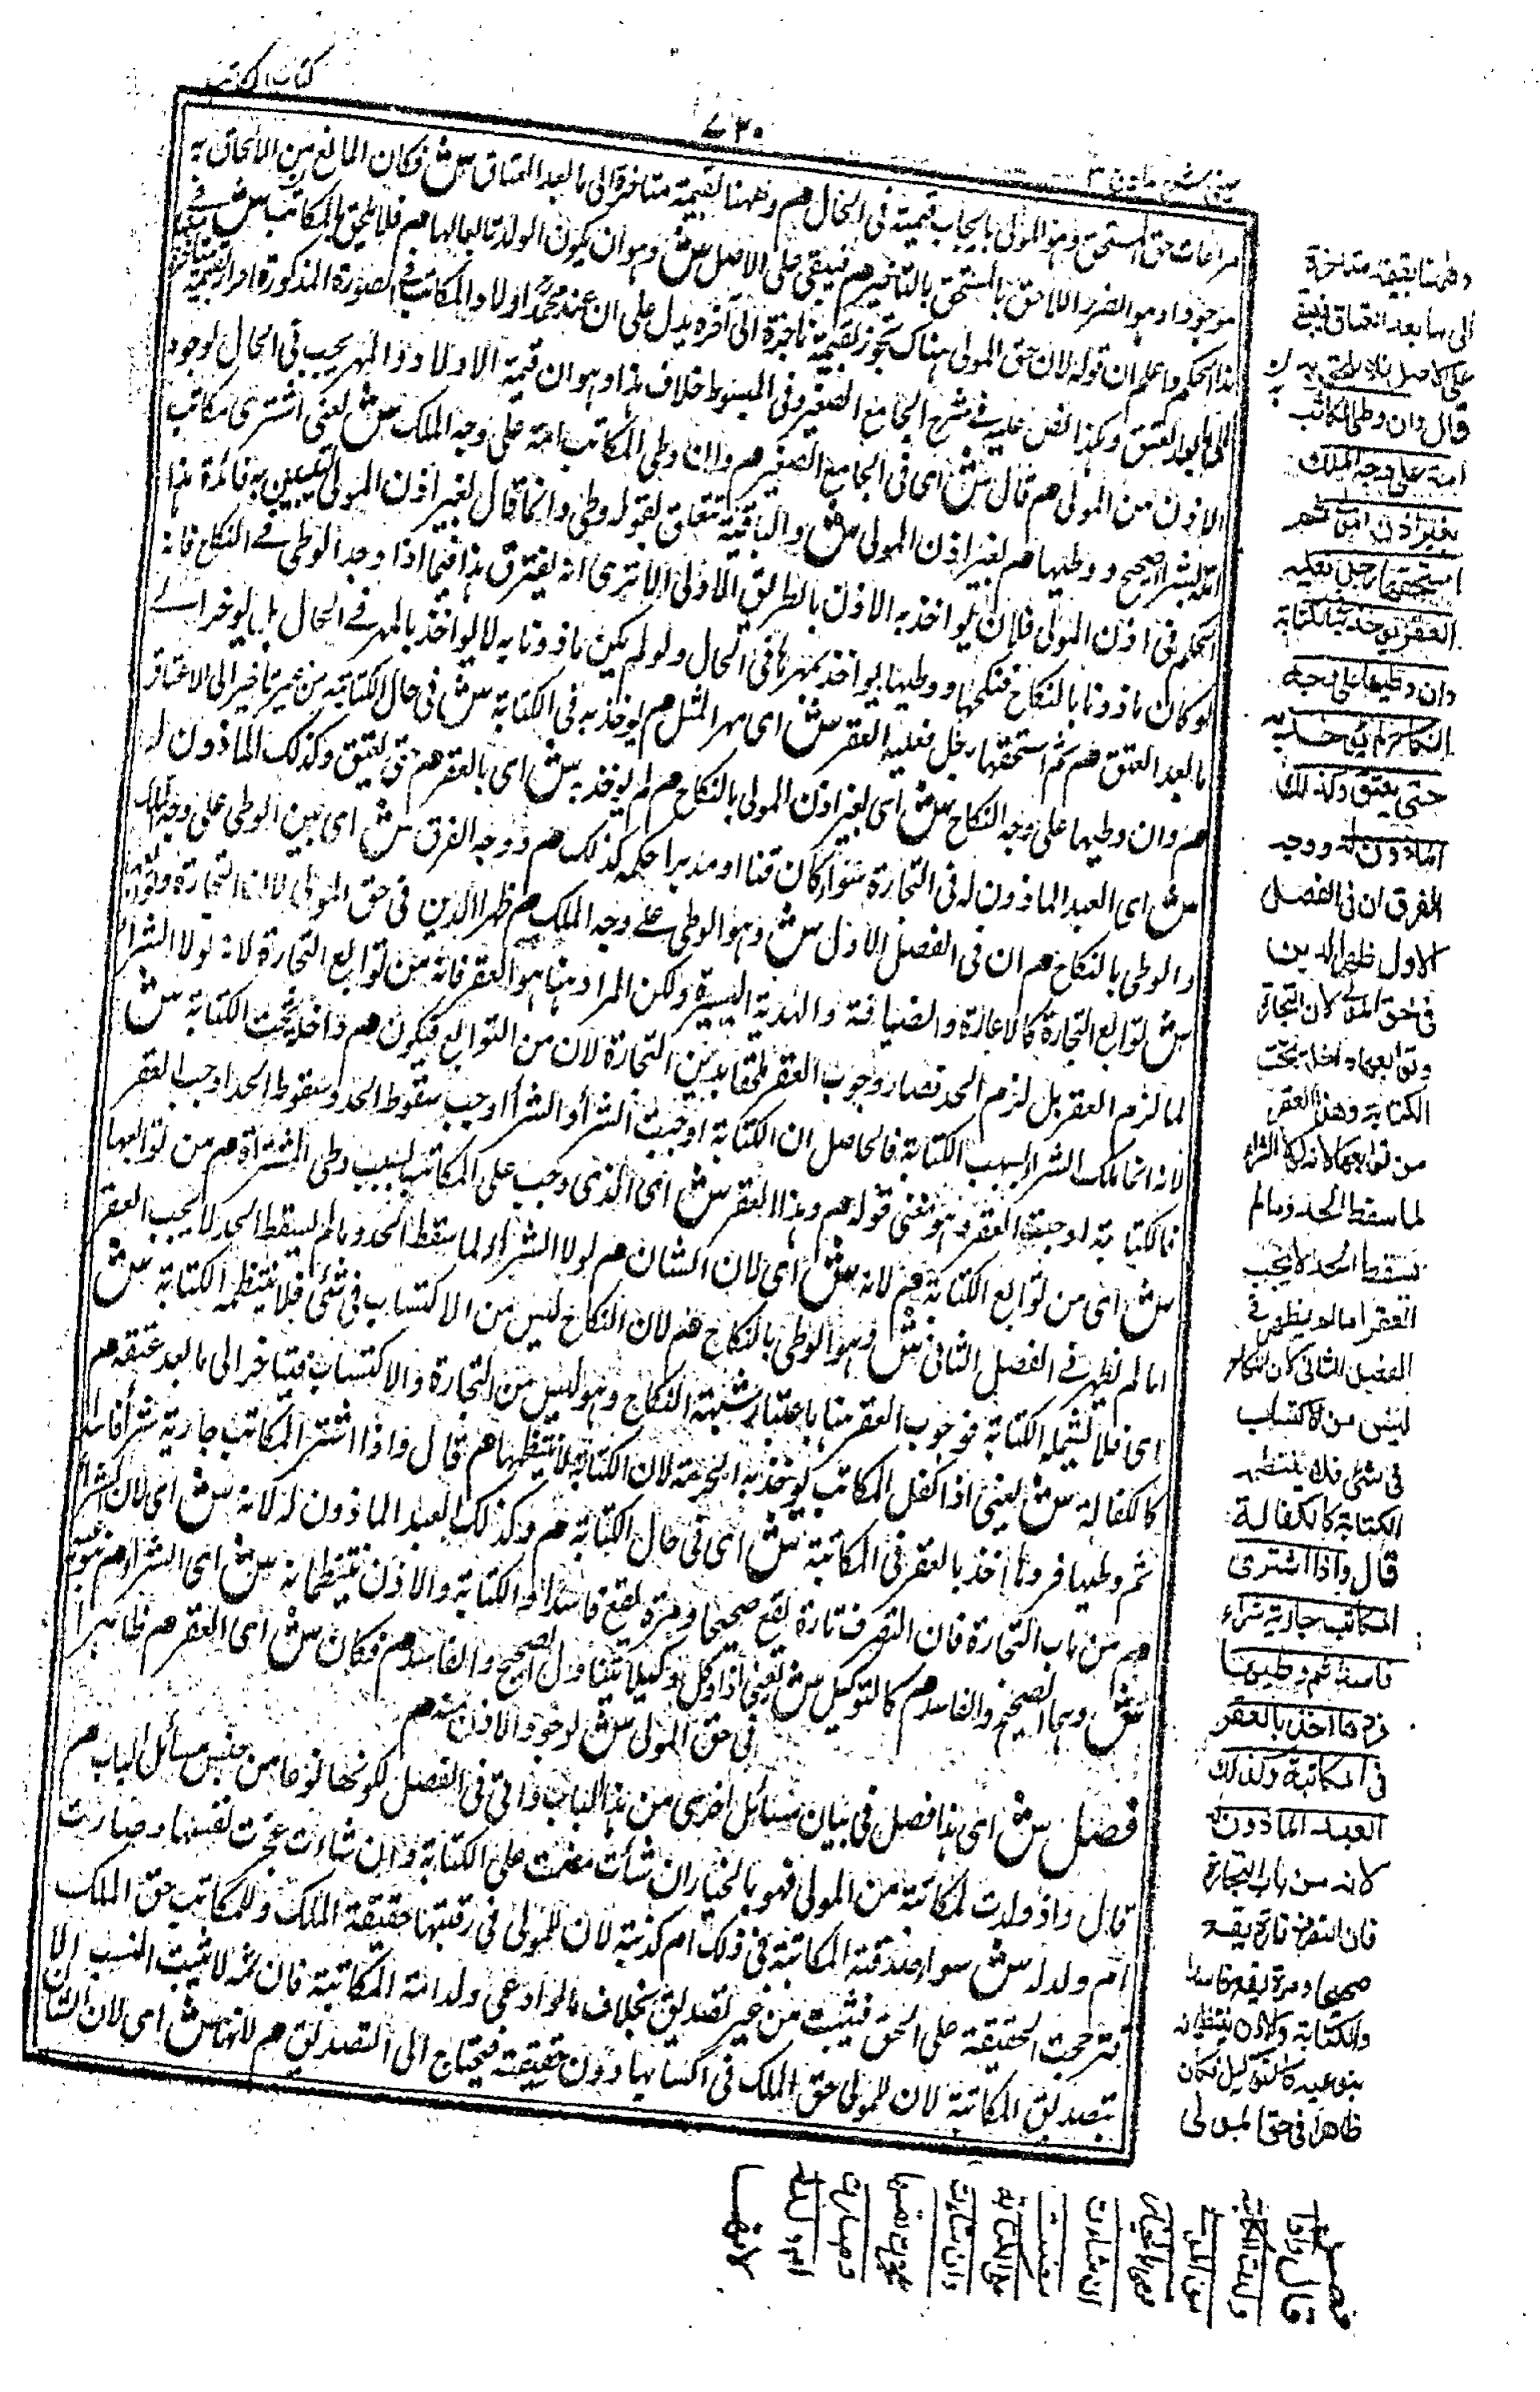 كتاب المكاتب
٧٣٠
عيني شرح هداية ج ٣
مراعات حق المستحق وهو المولى بايجاب قيمته فى الحال هم وههنا لقيمة متاخرة الى ما بعد العتاق ش فكان المانع من الالحاق به
موجودا وهو الضرر اللاحق بالمستحق بالتاخير هم فيبقى على الاصل ش وهو ان يكون الولد تابعا لها هم فلا يلحق المكاتب ش فى
هذا الحكم واعلم ان قوله لان حق المولى هناك مجبور لقيمة ناجزة الى آخره يدل على ان عند محمد اولاد المكاتب فى الصورة المذكورة احرار بقيمة متاخرة
الى ما بعد العتق وكذا نص عليه فى شرح الجامع الصغير وفى المبسوط خلاف هذا وهو ان قيمة الاولاد والمهر يجب فى الحال لوجود
الاذن من المولى هم قال ش اى فى الجامع الصغير هم وان وطى المكاتب امة على وجه الملك ش يعنى اشترى مكاتب
امة بشراء صحيح ووطيها هم بغير اذن المولى ش والباقية تتعلق بقوله وطى وانما قال بغير اذن المولى ليتبين به فائدة هذا
الحكم فى اذن المولى فلان يواخذ به الاذن بالطريق الاولى الا ترى انه يفترق هذا فيما اذا وجد الوطى فى النكاح فانه
لو كان ماذونا بالنكاح فنكحها ووطيها يواخذ بمهرها فى الحال ولو لم يكن ماذونا به لا يواخذ بالمهر فى الحال بل يوخر الى
ما بعد العتق هم ثم استحقها رجل فعليه العقر ش اى مهر المثل هم يوخذ به فى الكتابة ش فى حال الكتابة من غير تاخير الى الاعتاق
هم وان وطيها على وجه النكاح ش اى بغير اذن المولى بالنكاح هم لم يوخذ به ش اى بالعقر هم حتى يعتق وكذلك الماذون له
ش اى العبد الماذون له فى التجارة سواء كان قنا او مدبرا حكمه كذلك هم ووجه الفرق ش اى بين الوطى على وجه الملك
والوطى بالنكاح هم ان فى الفصل الاول ش وهو الوطى على وجه الملك هم ظهر الدين فى حق المولى لان التجارة وتوابعها
ش توابع التجارة كالاعارة والضيافة والهدية اليسيرة ولكن المراد هنا هو العقر فانه من توابع التجارة لانه لولا الشراء
لما لزم العقر بل لزم الحد فصار وجوب العقر من التجارة لان من التوابع فيكون هم داخلة تحت الكتابة ش
لانه انما ملك الشراء بسبب الكتابة فالحاصل ان الكتابة اوجبت الشراء والشراء اوجب سقوط الحد وسقوط الحد اوجب العقر
فالكتابة اوجبت العقر وهو معنى قوله هم وهذا العقر ش اى الذى وجب على المكاتب بسبب وطى المشتراة هم من توابعها
ش اى من توابع الكتابة هم لانه ش اى لان الشان هم لولا الشراء لما سقط الحد وما لم يسقط الحد لا يجب العقر
اما لم يظهر فى الفصل الثانى ش وهو الوطى بالنكاح هم لان النكاح ليس من الاكتساب فى شئ فلا ينتظمه الكتابة ش
اى فلا يشمله الكتابة فوجوب العقر هنا باعتبار شبهة النكاح وهو ليس من التجارة والاكتساب فيتاخر الى ما بعد عتقه هم
كالكفالة ش يعنى اذا كفل المكاتب يوخذ به لحريته لان الكتابة لا ينتظمها هم قال واذا اشترى المكاتب جارية شراء فاسدا
ثم وطيها فردها اخذ بالعقر فى المكاتبة ش اى فى حال الكتابة هم وكذلك العبد الماذون له لانه ش اى لان الشراء
هم من باب التجارة فان التصرف تارة يقع صحيحا ومرة يقع فاسدا والكتابة والاذن ينتظمانه ش اى الشراء هم بنوعيه
ش وهما الصحيح والفاسد هم كالتوكيل ش يعنى اذا وكل وكيلا يتناول الصحيح والفاسد هم فكان ش اى العقر هم ظاهرا
فى حق المولى ش لوجود الاذن منه هم
فصل ش اى هذا فصل فى بيان مسائل اخرى من هذا الباب واتى فى الفصل لكونها نوعا من جنس مسائل الباب هم
قال واذا ولدت المكاتبة من المولى فهو بالخيار ان شاءت مضت على الكتابة وان شاءت عجزت نفسها وصارت
ام ولد له ش سواء صدقته المكاتبة فى ذلك ام كذبته لان للمولى فى رقبتها حقيقة الملك وللمكاتب حق الملك
فترجحت الحقيقة على الحق فيثبت من غير تصديق بخلاف ما لو ادعى ولد امة المكاتبة فان ثمه لا يثبت النسب الا
بتصديق المكاتبة لان للمولى حق الملك فى اكسابها دون حقيقته فيحتاج الى التصديق هم لانها ش اى لان الشان
وههنا بقيمة متاخرة
الى ما بعد العتاق فيبقى
على الاصل فلا يلحق به
قال وان وطى المكاتب
امة على وجه الملك
بغير اذن المولى ثم
استحقها رجل فعليه
العقر يوخذ به فى الكتابة
وان وطيها على وجه
النكاح لم يوخذ به
حتى يعتق وكذلك
الماذون له ووجه
الفرق ان فى الفصل
الاول ظهر الدين
فى حق المولى لان التجارة
وتوابعها داخلة تحت
الكتابة وهذا العقر
من توابعها لانه لولا الشراء
لما سقط الحد وما لم
يسقط الحد لا يجب
العقر اما لم يظهر فى
الفصل الثانى لان النكاح
ليس من الاكتساب
فى شئ فلا ينتظمه
الكتابة كالكفالة
قال واذا اشترى
المكاتب جارية شراء
فاسدا ثم وطيها
فردها اخذ بالعقر
فى المكاتبة وكذلك
العبد الماذون له
لانه من باب التجارة
فان التصرف تارة يقع
صحيحا ومرة يقع فاسدا
والكتابة والاذن ينتظمانه
بنوعيه كالتوكيل فكان
ظاهرا فى حق المولى
فصل
قال واذا
ولدت المكاتبة
من المولى
فهى بالخيار
ان شاءت
مضت
على الكتابة
وان شاءت
عجزت نفسها
وصارت
ام ولد له
لانها